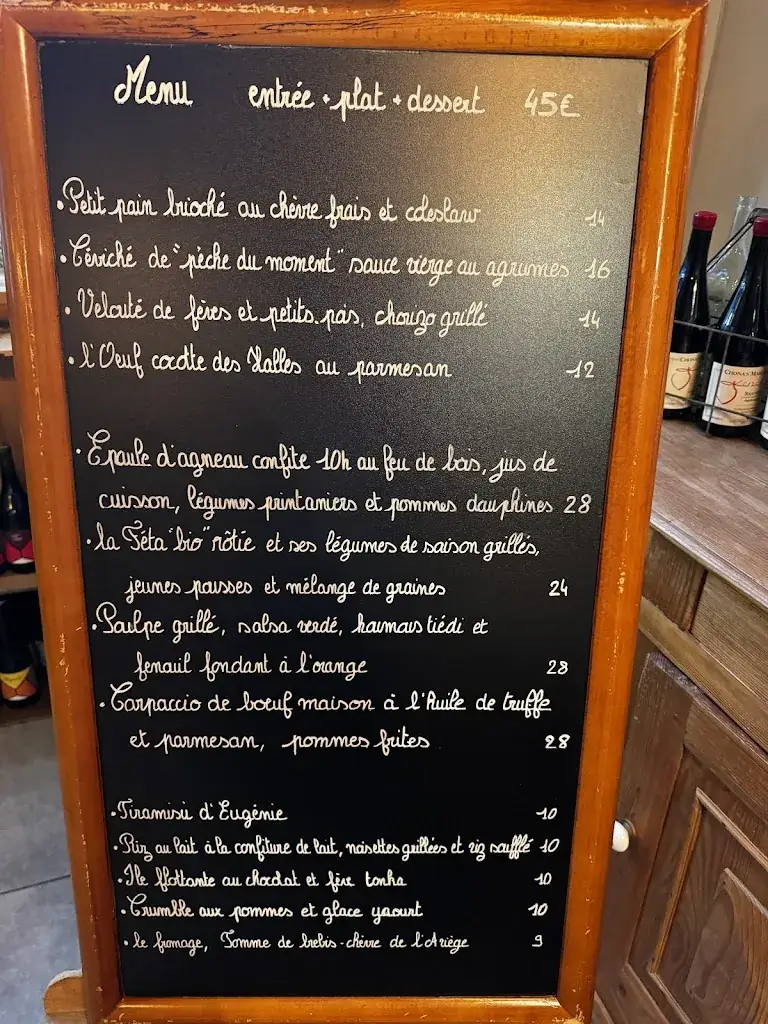 Menu entrée + plat + dessert 45€
• Petit pain brioché au chèvre frais et coleslaw 14
• Céviché de "pèche du moment" sauce vierge au agrumes 16
• Velouté de fèves et petits pois, chorizo grillé 14
• l'Oeuf cocotte des Halles au parmesan 12
• Epaule d'agneau confite 10h au feu de bois, jus de
cuisson, légumes printaniers et pommes dauphines 28
• la Féta "bio" rôtie et ses légumes de saison grillés,
jeunes pousses et mélange de graines 24
• Poulpe grillé, salsa verdé, houmous tiédi et
fenouil fondant à l'orange 28
• Carpaccio de boeuf maison à l'huile de truffe
et parmesan, pommes frites 28
• Tiramisù d'Eugénie 10
• Riz au lait à la confiture de lait, noisettes grillées et riz soufflé 10
• Ile flottante au chocolat et fève tonka 10
• Crumble aux pommes et glace yaourt 10
• le fromage, Tomme de brebis-chèvre de l'Ariège 9